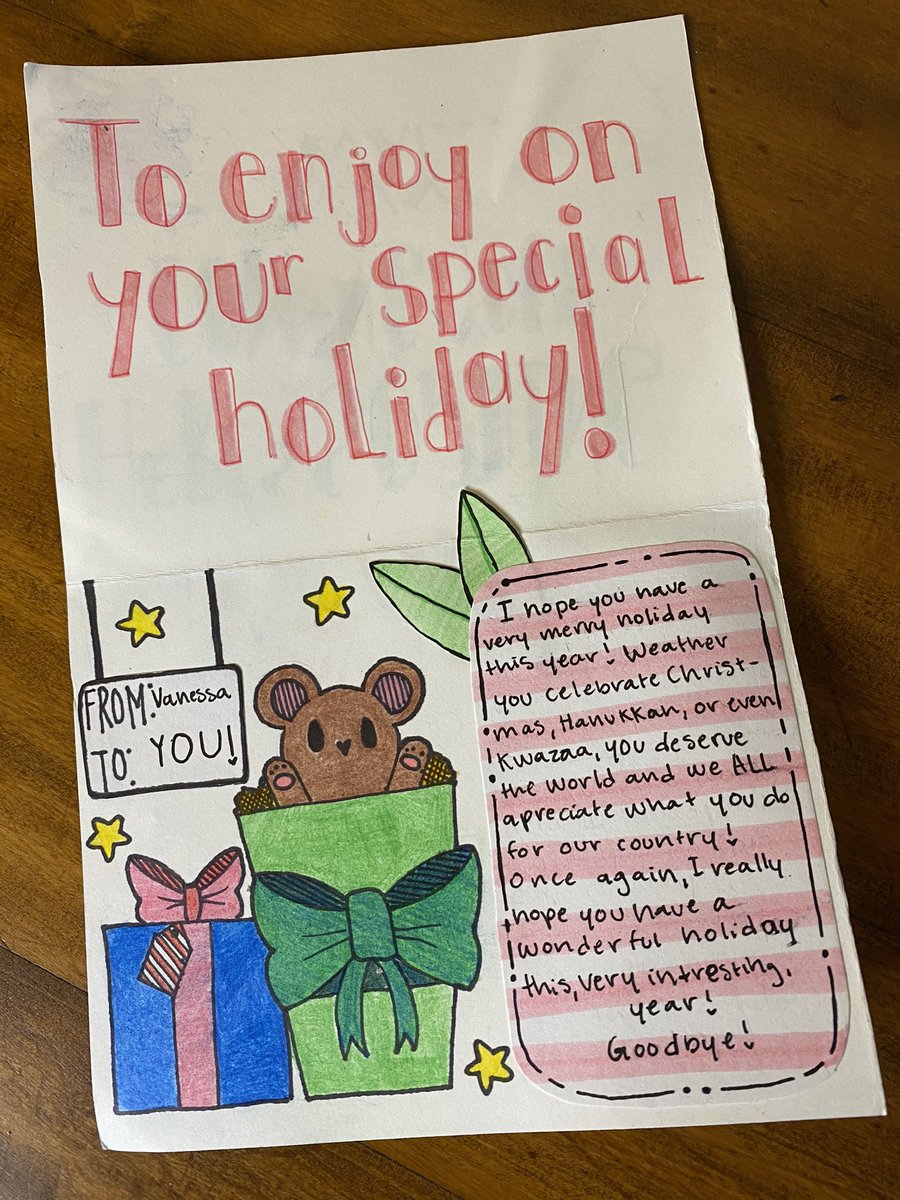 To enjoy on
your special
holiday!
FROM: Vanessa
TO: YOU!
I hope you have a
very merry holiday
this year! Weather
you celebrate Christ-
mas, Hanukkah, or even
Kwazaa, you deserve
the world and we ALL
apreciate what you do
for our country!
Once again, I really
hope you have a
wonderful holiday
this, very intresting,
year!
Goodbye!